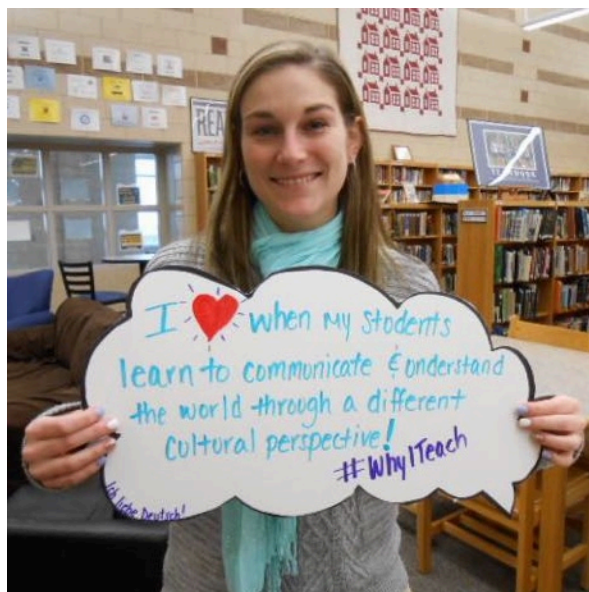 REA
I ❤ when my students
learn to communicate & understand
the world through a different
cultural perspective!
#WhyITeach
Ich liebe Deutsch!